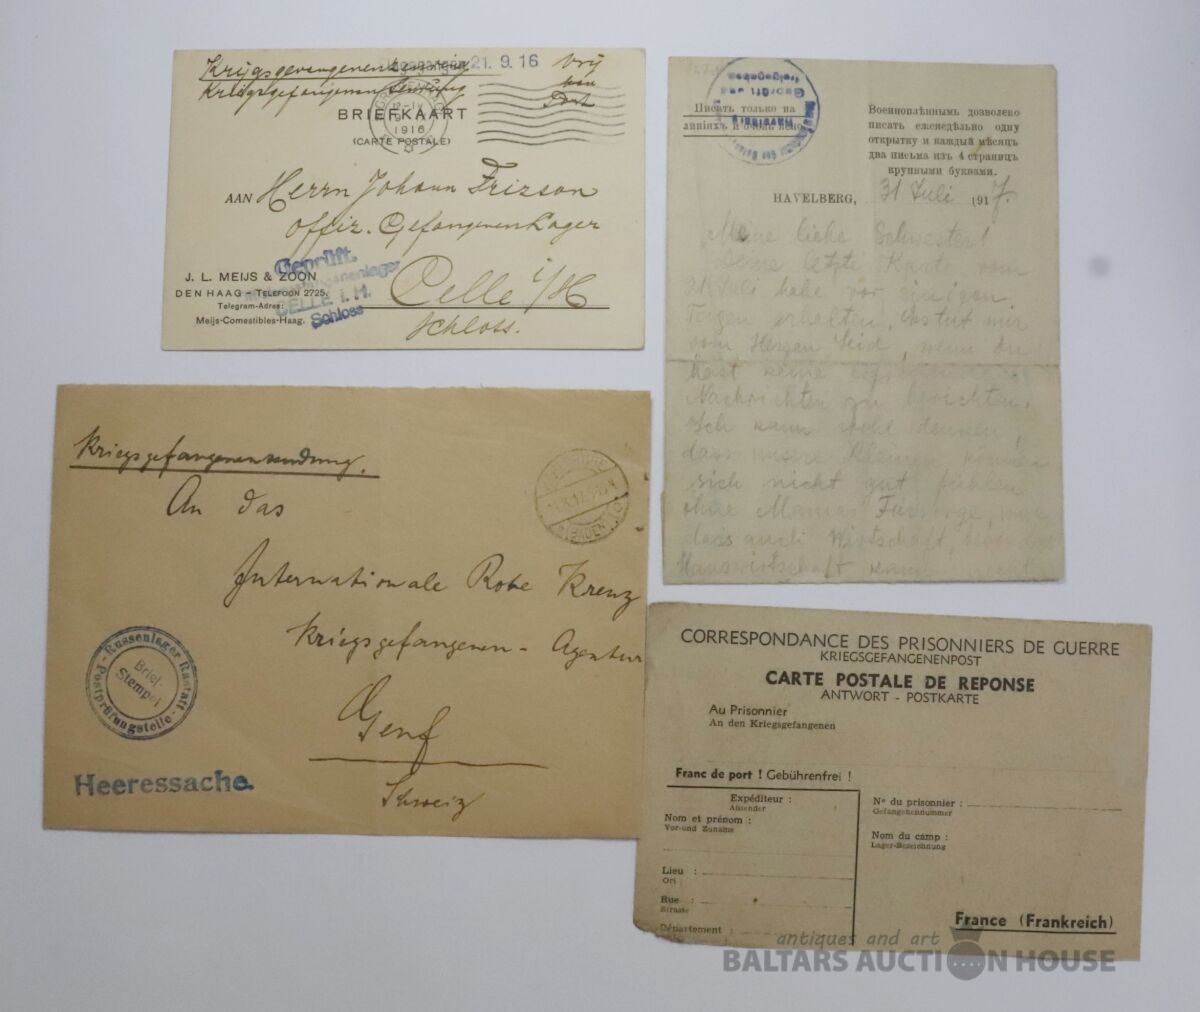 Krijgsgevangenenzending
Kriegsgefangenensendung
21. 9. 16
Vrij
van
Port
BRIEFKAART
1916
(CARTE POSTALE)
AAN Herrn Johann Frizson
Offiz. Gefangenenlager
Celle i/H
Schloss.
Geprüft.
CELLE i. H.
Schloss
J. L. MEIJS & ZOON
DEN HAAG – TELEFOON 2725.
Telegram-Adres:
Meijs-Comestibles-Haag.
Geprüft und
freigegeben
Havelberg
Писать только на
линіяхъ и очень ясно
Военноплѣннымъ дозволено
писать еженедѣльно одну
открытку и каждый мѣсяцъ
два письма изъ 4 страницъ
крупными буквами.
HAVELBERG, 31 Juli 1917.
Meine liebe Schwester!
Deine letzte Karte vom
Juli habe vor einigen
Tagen erhalten. Es tut mir
vom Herzen Leid, wenn du
hast keine
Nachrichten zu berichten.
Ich kann wohl denken,
dass unsere Kleinen können
sich nicht gut fühlen
ohne Mamas Fürsorge,
dass auch Wirtschaft,
Hauswirtschaft kann nicht
Kriegsgefangenensendung.
An das
Internationale Rote Kreuz
Kriegsgefangenen - Agentur
Genf
Schweiz
(BADEN)
Russenlager Rastatt
Postprüfungsstelle
Brief-
Stempel
Heeressache.
CORRESPONDANCE DES PRISONNIERS DE GUERRE
KRIEGSGEFANGENENPOST
CARTE POSTALE DE REPONSE
ANTWORT - POSTKARTE
Au Prisonnier
An den Kriegsgefangenen
Franc de port ! Gebührenfrei !
Expéditeur :
Absender
Nom et prénom :
Vor-und Zuname
Lieu :
Ort
Rue :
Strasse
Département :
N° du prisonnier :
Gefangenennummer
Nom du camp :
Lager-Bezeichnung
France (Frankreich)
antiques and art
BALTARS AUCTION HOUSE